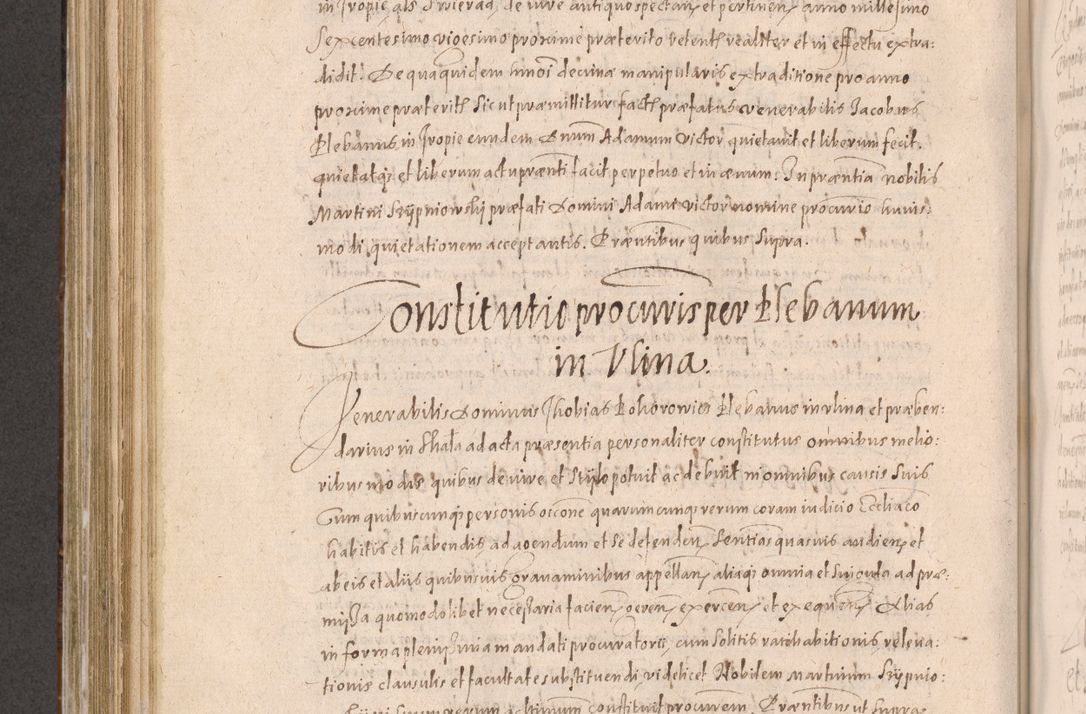 in Jropie als Swierad, de iure antiquo spectan et pertinen anno millesimo
Sexcentesimo vigesimo proxime præterito detenth realiter et in effectu extra:
didit. De qua quidem hmoi decima manipularis extraditione pro anno
proxime præterith sic ut præmittitur facth præfatus venerabilis Jacobus
Plebanus in Jropie eundem Dnum Adamum Victor quietavit et liberum fecit.
quietatq; et liberum actu prænti facit perpetuo et in ævum. In præntia nobilis
Martini Srzypniowskij præfati Domini Adami Victor nomine procurio huius:
modi quietationem acceptantis. Præntibus quibus supra.
Constitutio procuris per Plebanum
in Vlina.
Venerabilis Dominus Thobias Bohorowicz Plebanus in Vlina et præben:
darius in Skala ad acta præsentia personaliter constitutus omnibus melio:
ribus modis quibus de iure et stylo potuit ac debuit in omnibus causis suis
Cum quibuscunq; personis occone quarumcunq; rerum coram iudicio Eccliaco
habitis et habendis ad agendum et se defenden, Sentias quasvis audien, et
ab eis et aliis quibusvis gravaminibus appellan, aliaq; omnia et singula ad præ:
missa quomodolibet necessaria facien, geren, exercen, et exequen, Alias
in forma plenissima mandati procuratorii, cum solitis ratihabitionis, releva:
tionis clausulis et facultate substituendi, videlicet Nobilem Martinum Srzypnio:
constituit procurem. Præntibus ut supra